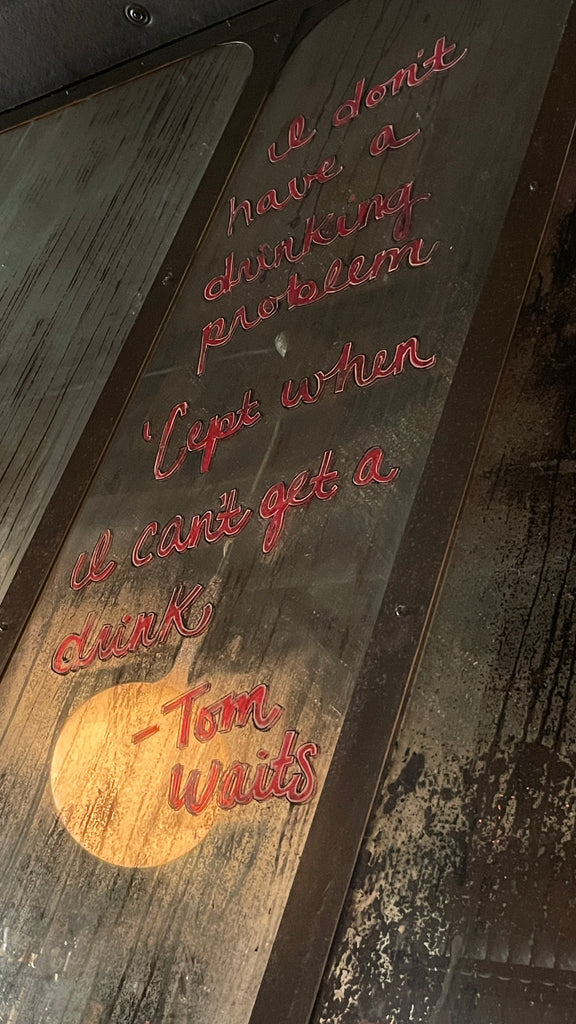 I don't
have a
drinking
problem
'Cept when
I can't get a
drink
- Tom
Waits